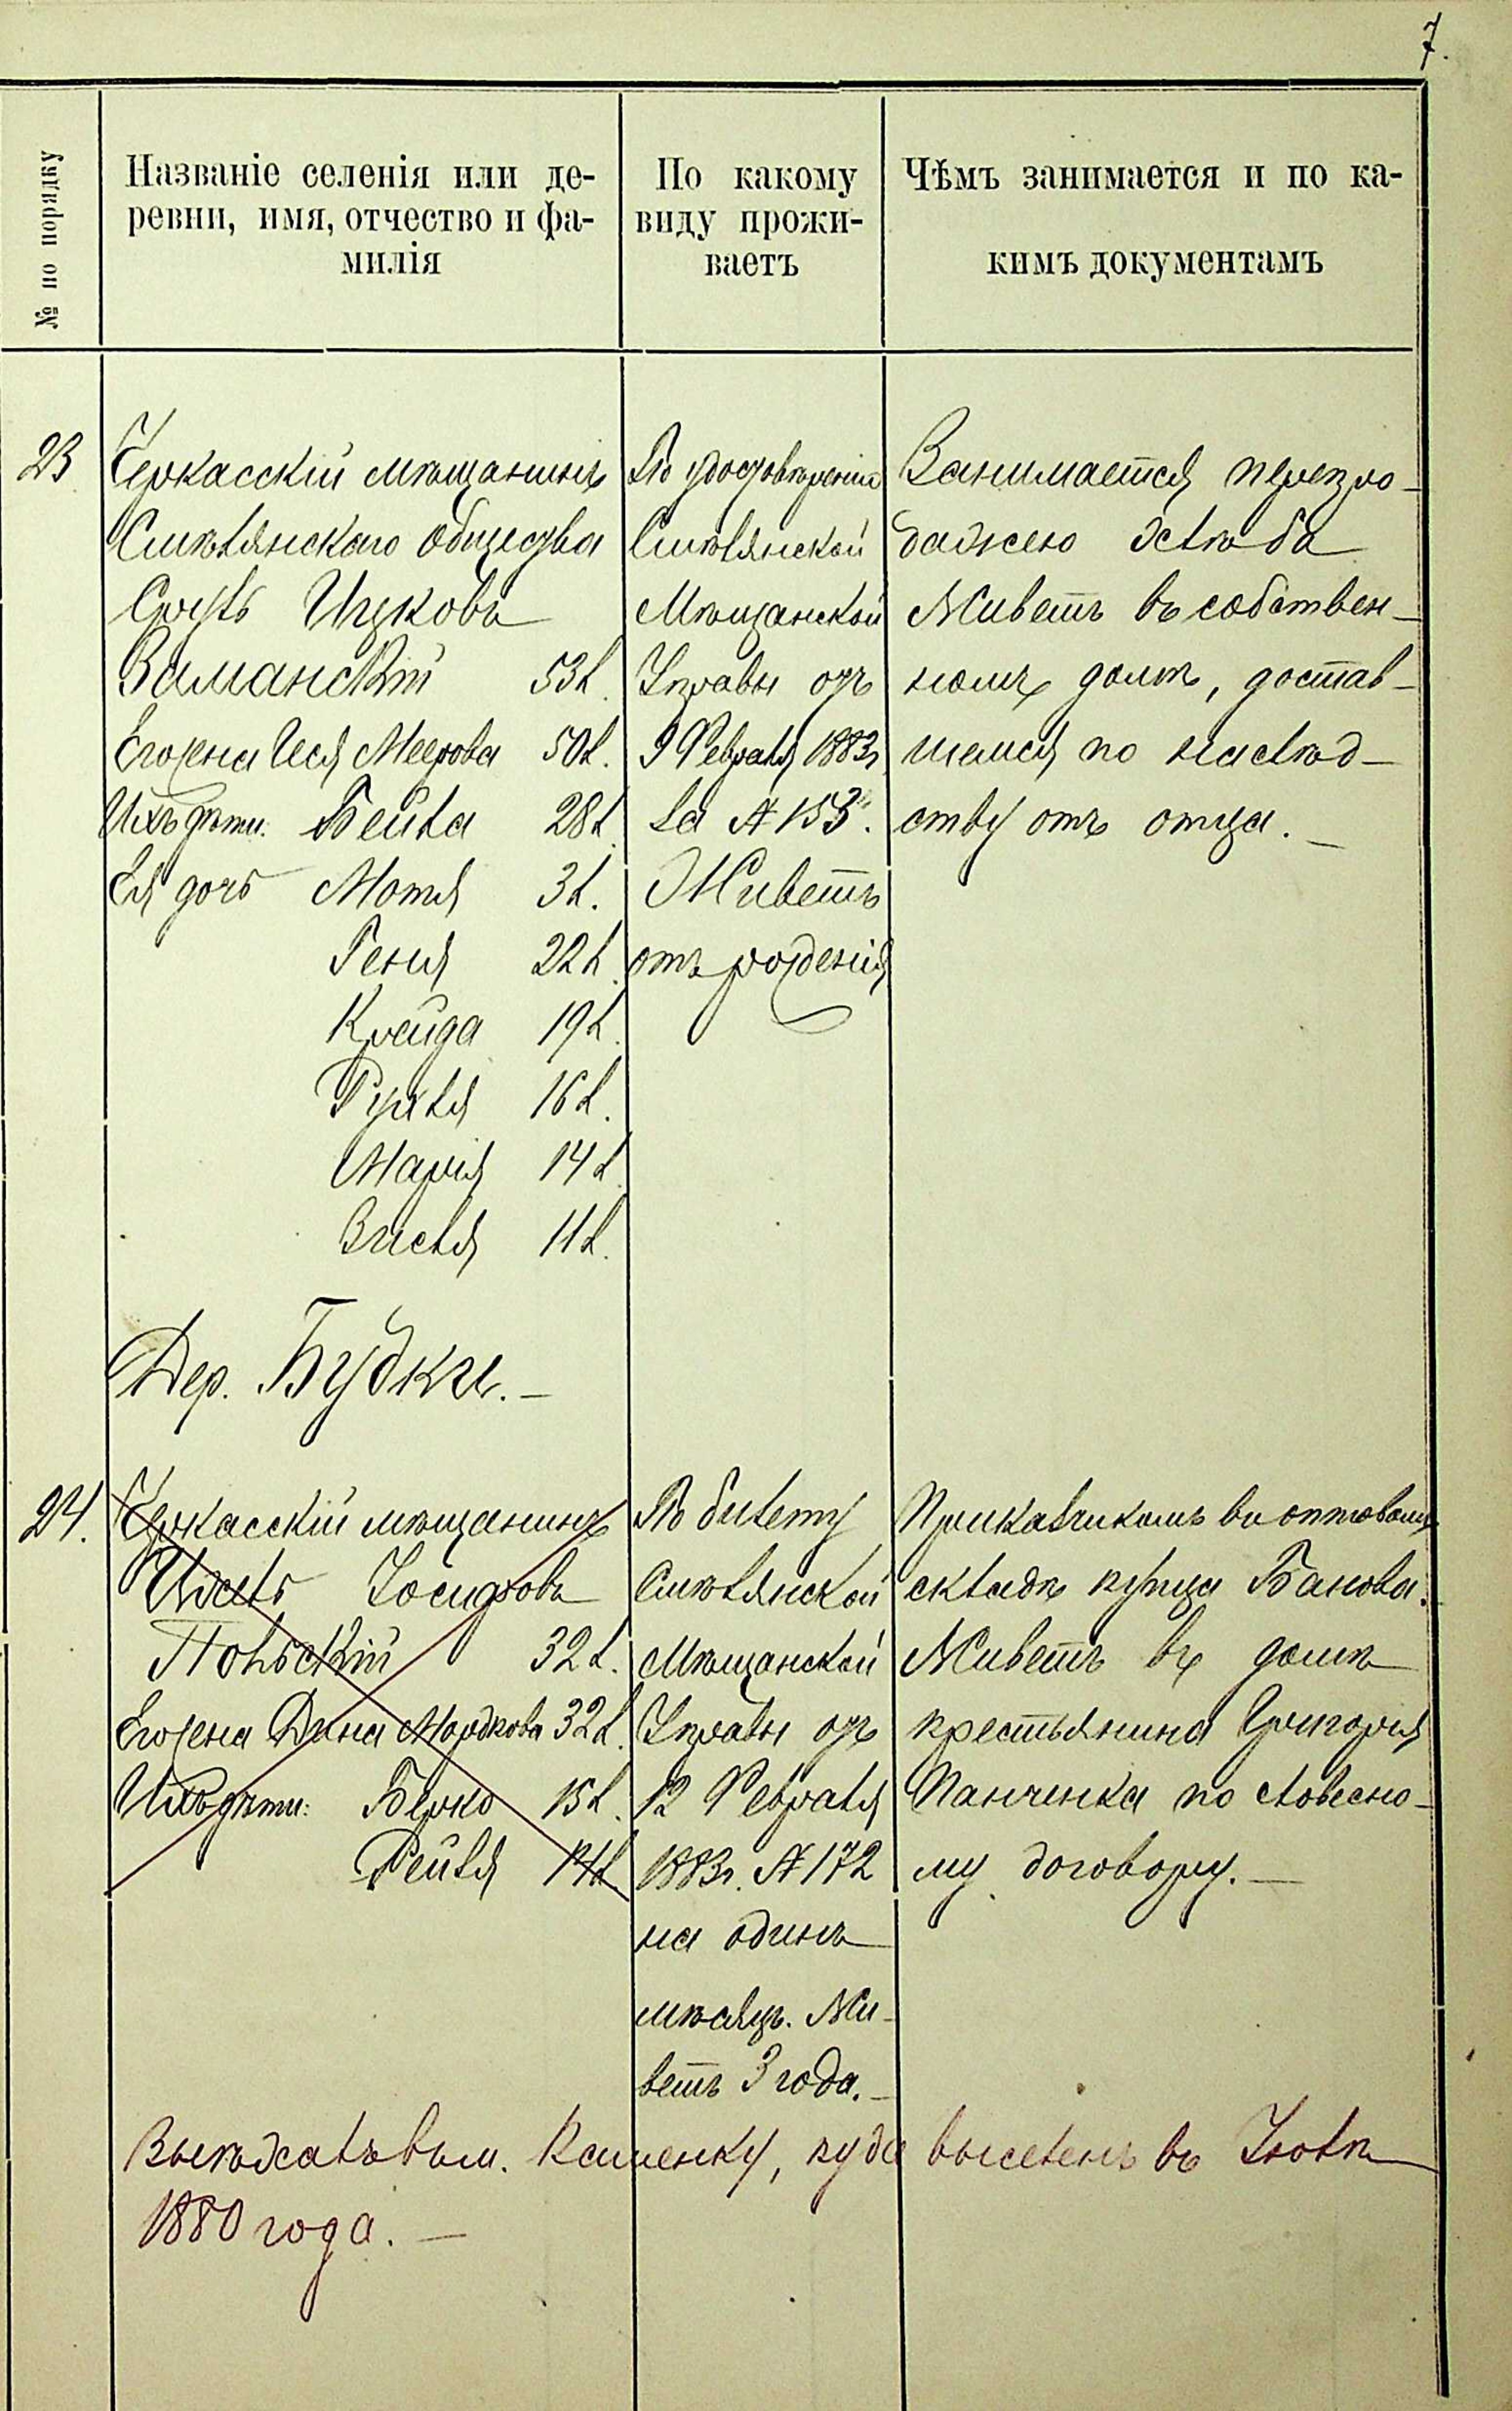 7.
№ по порядку
Названіе селенія или де-
ревни, имя, отчество и фа-
милія
По какому
виду прожи-
ваетъ
Чѣмъ занимается и по ка-
кимъ документамъ
23
Черкасскій мѣщанинъ
Смѣлянскаго общества
Сруль Ицковъ
Заманскій 53 л.
Его жена Чеся Меерова 50 л.
Ихъ дѣти: Бейла 28 л.
Ея дочь Мотя 3 л.
Геня 22 л.
Крейда 19 л.
Рухля 16 л.
Марія 14 л.
Зисля 11 л.
По удостовѣренію
Смѣлянской
Мѣщанской
Управы отъ
9 Февраля 1883 г.
за № 153.
Живетъ
отъ рожденія
Занимается перепро-
дажею хлѣба
Живетъ въ собствен-
номъ домѣ, достав-
шемся по наслѣд-
ству отъ отца.
Дер. Будки.
24.
Черкасскій мѣщанинъ
Іосифовъ
Польскій 32 л.
Его жена Дина Мордкова 32 л.
Ихъ дѣти: Берко 15 л.
Рейзя 14 л.
По билету
Смѣлянской
Мѣщанской
Управы отъ
12 Февраля
1883 г. № 172
на одинъ
мѣсяцъ. Жи-
ветъ 3 года.
Прикащикомъ въ оптовомъ
складѣ купца Банова.
Живетъ въ домѣ
крестьянина Григорія
Панченка по словесно-
му договору.
Выѣхалъ въ м. Каменку, куда выселенъ въ Іюлѣ
1880 года.